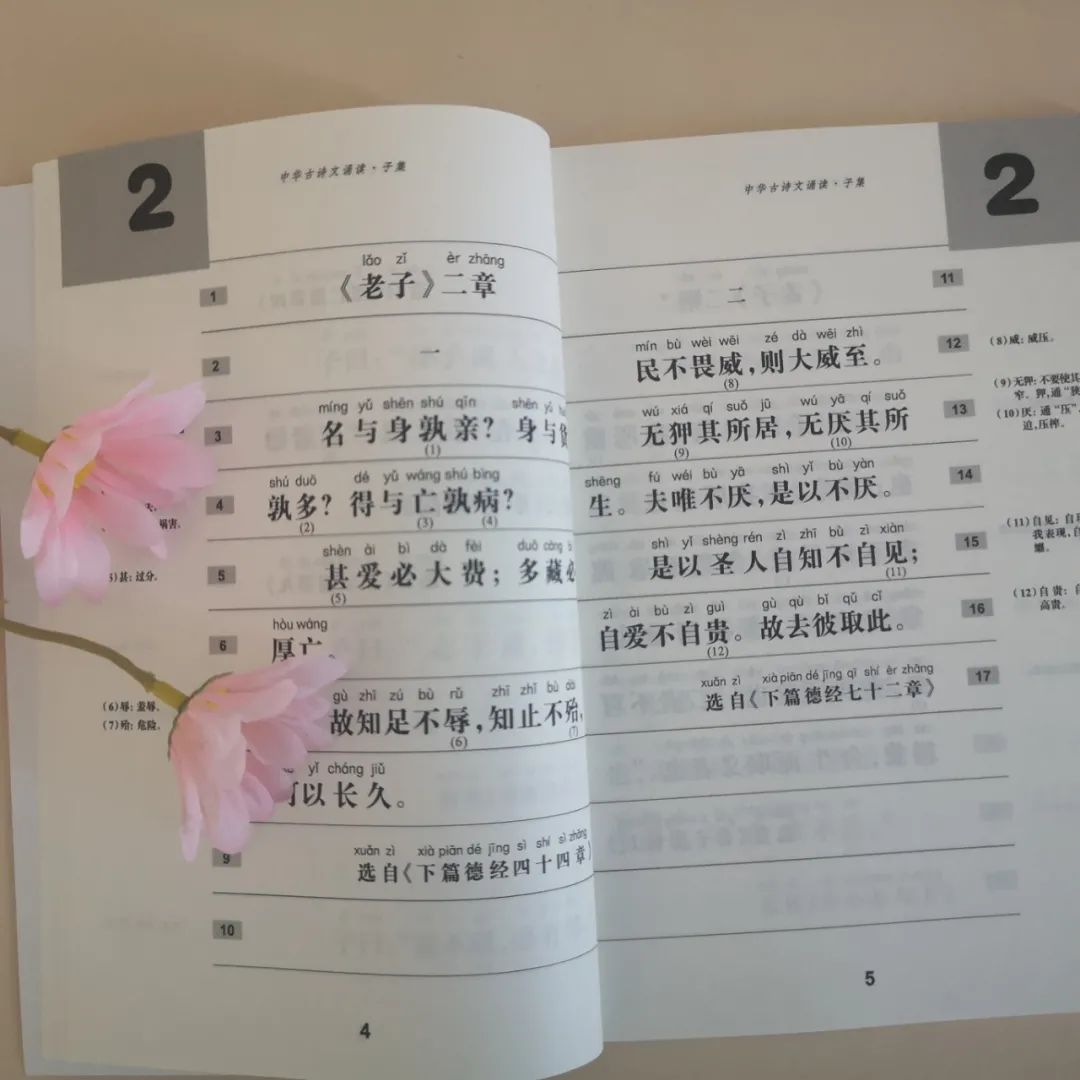 2
中华古诗文诵读·子集
lǎo zǐ èr zhāng
1 《老子》二章
2 一
míng yǔ shēn shú qīn shēn yǔ
3 名与身孰亲？身与
(1)
shú duō dé yǔ wáng shú bìng
4 孰多？得与亡孰病？
(2) (3) (4)
祸害。
shèn ài bì dà fèi duō cáng
5 甚爱必大费；多藏必
(5)
甚：过分。
hòu wáng
6 厚亡。
gù zhī zú bù rǔ zhī zhǐ bù dài
故知足不辱，知止不殆，
(6) (7)
(6)辱：羞辱。
(7)殆：危险。
yǐ cháng jiǔ
可以长久。
xuǎn zì xià piān dé jīng sì shí sì zhāng
9 选自《下篇德经四十四章》
10
4
2
中华古诗文诵读·子集
二 11
mín bù wèi wēi zé dà wēi zhì
民不畏威，则大威至。 12
(8)
(8)威：威压。
wú xiá qí suǒ jū wú yā qí suǒ
无狎其所居，无厌其所 13
(9) (10)
(9)无狎：不要使其
窄。狎，通“狭
(10)厌：通“压”，
迫，压榨。
shēng fú wéi bù yā shì yǐ bù yàn
生。夫唯不厌，是以不厌。 14
shì yǐ shèng rén zì zhī bù zì xiàn
是以圣人自知不自见； 15
(11)
(11)自见：自
我表现，自
zì ài bù zì guì gù qù bǐ qǔ cǐ
自爱不自贵。故去彼取此。 16
(12)
(12)自贵：自
高贵。
xuǎn zì xià piān dé jīng qī shí èr zhāng
选自《下篇德经七十二章》 17
5